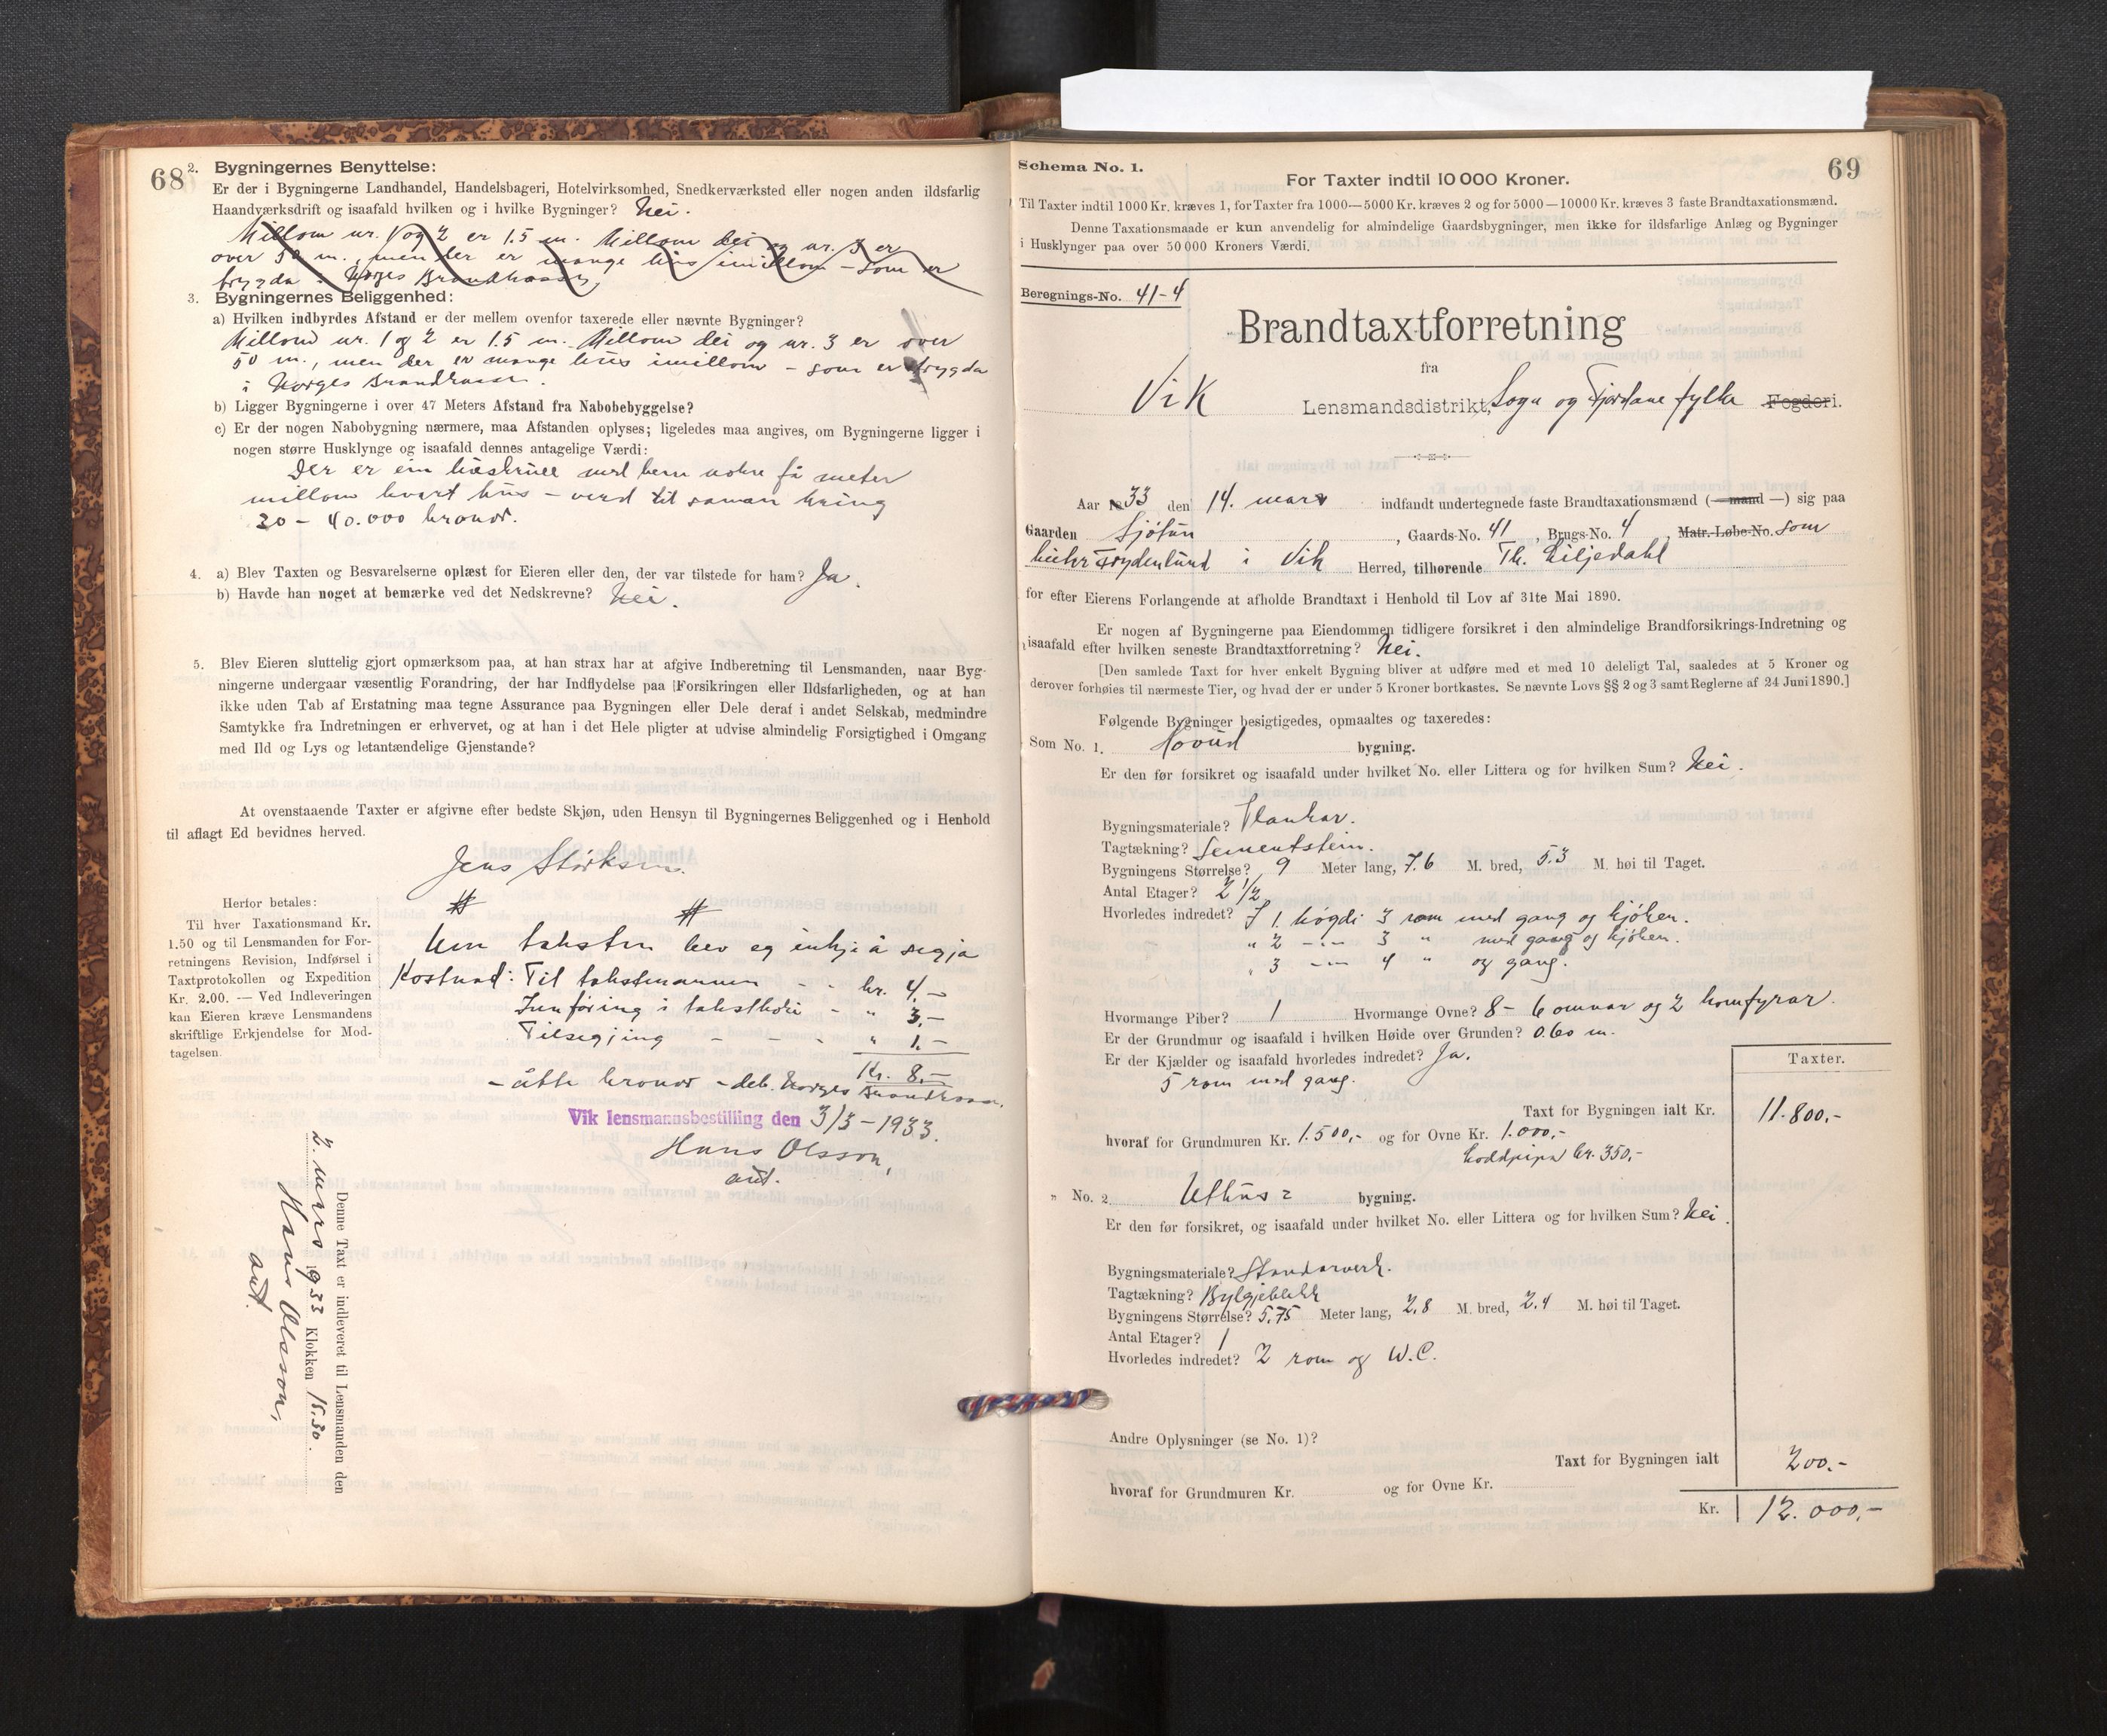 68
2. Bygningernes Benyttelse:
Er der i Bygningerne Landhandel, Handelsbageri, Hotelvirksomhed, Snedkerværksted eller nogen anden ildsfarlig
Haandværksdrift og isaafald hvilken og i hvilke Bygninger? Nei.
Millom nr. 1 og 2 er 1.5 m. Millom dei og nr. 3 er
over 50 m., men der er mange hus imillom - som er
trygda i Norges Brandkasse.
3. Bygningernes Beliggenhed:
a) Hvilken indbyrdes Afstand er der mellem ovenfor taxerede eller nævnte Bygninger?
Millom nr. 1 og 2 er 1.5 m. Millom dei og nr. 3 er over
50 m., men der er mange hus imillom - som er trygda
i Norges Brandkasse.
b) Ligger Bygningerne i over 47 Meters Afstand fra Nabobebyggelse?
c) Er der nogen Nabobygning nærmere, maa Afstanden oplyses; ligeledes maa angives, om Bygningerne ligger i
nogen større Husklynge og isaafald dennes antagelige Værdi:
Der er ein huskrull med bern nokre få meter
millom kvart hus - verd til saman kring
30 - 40.000 kronor.
4. a) Blev Taxten og Besvarelserne oplæst for Eieren eller den, der var tilstede for ham? Ja.
b) Havde han noget at bemærke ved det Nedskrevne? Nei.
5. Blev Eieren sluttelig gjort opmærksom paa, at han strax har at afgive Indberetning til Lensmanden, naar Byg-
ningerne undergaar væsentlig Forandring, der har Indflydelse paa Forsikringen eller Ildsfarligheden, og at han
ikke uden Tab af Erstatning maa tegne Assurance paa Bygningen eller Dele deraf i andet Selskab, medmindre
Samtykke fra Indretningen er erhvervet, og at han i det Hele pligter at udvise almindelig Forsigtighed i Omgang
med Ild og Lys og letantændelige Gjenstande?
At ovenstaaende Taxter er afgivne efter bedste Skjøn, uden Hensyn til Bygningernes Beliggenhed og i Henhold
til aflagt Ed bevidnes herved.
Jens Størksen.
Herfor betales:
Til hver Taxationsmand Kr.
1.50 og til Lensmanden for For-
retningens Revision, Indførsel i
Taxtprotokollen og Expedition
Kr. 2.00. — Ved Indleveringen
kan Eieren kræve Lensmandens
skriftlige Erkjendelse for Mod-
tagelsen.
Um taksten hev eg inkje å segja
Kostnad: Til takstmannen - - kr. 4.-
Innføring i takstboki - " 3.-
Tilsegjing - - - " 1.-
Kr. 8.-
- åtte kronor - deb. Norges Brandkasse.
Vik lensmannsbestilling den 3/3 - 1933.
Hans Olsson,
aut.
Denne Taxt er indleveret til Lensmanden den
2. mars 1933 Klokken 15.30.
Hans Olsson,
aut.
69
Schema No. 1.
For Taxter indtil 10 000 Kroner.
Til Taxter indtil 1000 Kr. kræves 1, for Taxter fra 1000—5000 Kr. kræves 2 og for 5000—10000 Kr. kræves 3 faste Brandtaxationsmænd.
Denne Taxationsmaade er kun anvendelig for almindelige Gaardsbygninger, men ikke for ildsfarlige Anlæg og Bygninger
i Husklynger paa over 50 000 Kroners Værdi.
Beregnings-No. 41-4
Brandtaxtforretning
fra
Vik Lensmandsdistrikt, Sogn og Fjordane fylke Fogderi.
Aar 1933 den 14. mars indfandt undertegnede faste Brandtaxationsmænd (—mand—) sig paa
Gaarden Sjøtun, Gaards-No. 41, Brugs-No. 4, Matr.-Løbe-No. som
heiter Frydenlund i Vik Herred, tilhørende Th. Liljedahl
for efter Eierens Forlangende at afholde Brandtaxt i Henhold til Lov af 31te Mai 1890.
Er nogen af Bygningerne paa Eiendommen tidligere forsikret i den almindelige Brandforsikrings-Indretning og
isaafald efter hvilken seneste Brandtaxtforretning? Nei.
[Den samlede Taxt for hver enkelt Bygning bliver at udføre med et med 10 deleligt Tal, saaledes at 5 Kroner og
derover forhøies til nærmeste Tier, og hvad der er under 5 Kroner bortkastes. Se nævnte Lovs §§ 2 og 3 samt Reglerne af 24 Juni 1890.]
Følgende Bygninger besigtigedes, opmaaltes og taxeredes:
Som No. 1. Hovud bygning.
Er den før forsikret og isaafald under hvilket No. eller Littera og for hvilken Sum? Nei.
Bygningsmateriale? Plankar.
Tagtækning? Sementstein.
Bygningens Størrelse? 9 Meter lang, 7.6 M. bred, 5.3 M. høi til Taget.
Antal Etager? 2 1/2
Hvorledes indredet? I 1. høgdi 3 rom med gang og kjøken.
" 2 -"- 3 " med gang og kjøken.
" 3 -"- 4 " og gang.
Hvormange Piber? 1 Hvormange Ovne? 8 - 6 omnar og 2 komfyrar.
Er der Grundmur og isaafald i hvilken Høide over Grunden? 0.60 m.
Er der Kjælder og isaafald hvorledes indredet? Ja.
5 rom med gang.
Taxter.
Taxt for Bygningen ialt Kr. 11.800,-
hvoraf for Grundmuren Kr. 1.500,- og for Ovne Kr. 1.000,-
Loddpipa kr. 350,-
" No. 2 Uthus bygning.
Er den før forsikret, og isaafald under hvilket No. eller Littera og for hvilken Sum? Nei.
Bygningsmateriale? Standarverk.
Tagtækning? Bylgjeblikk
Bygningens Størrelse? 5.75 Meter lang, 2.8 M. bred, 2.4 M. høi til Taget.
Antal Etager? 1
Hvorledes indredet? 2 rom og W.C.
Andre Oplysninger (se No. 1)?
Taxt for Bygningen ialt 200.-
hvoraf for Grundmuren Kr. og for Ovne Kr.
Kr. 12.000,-